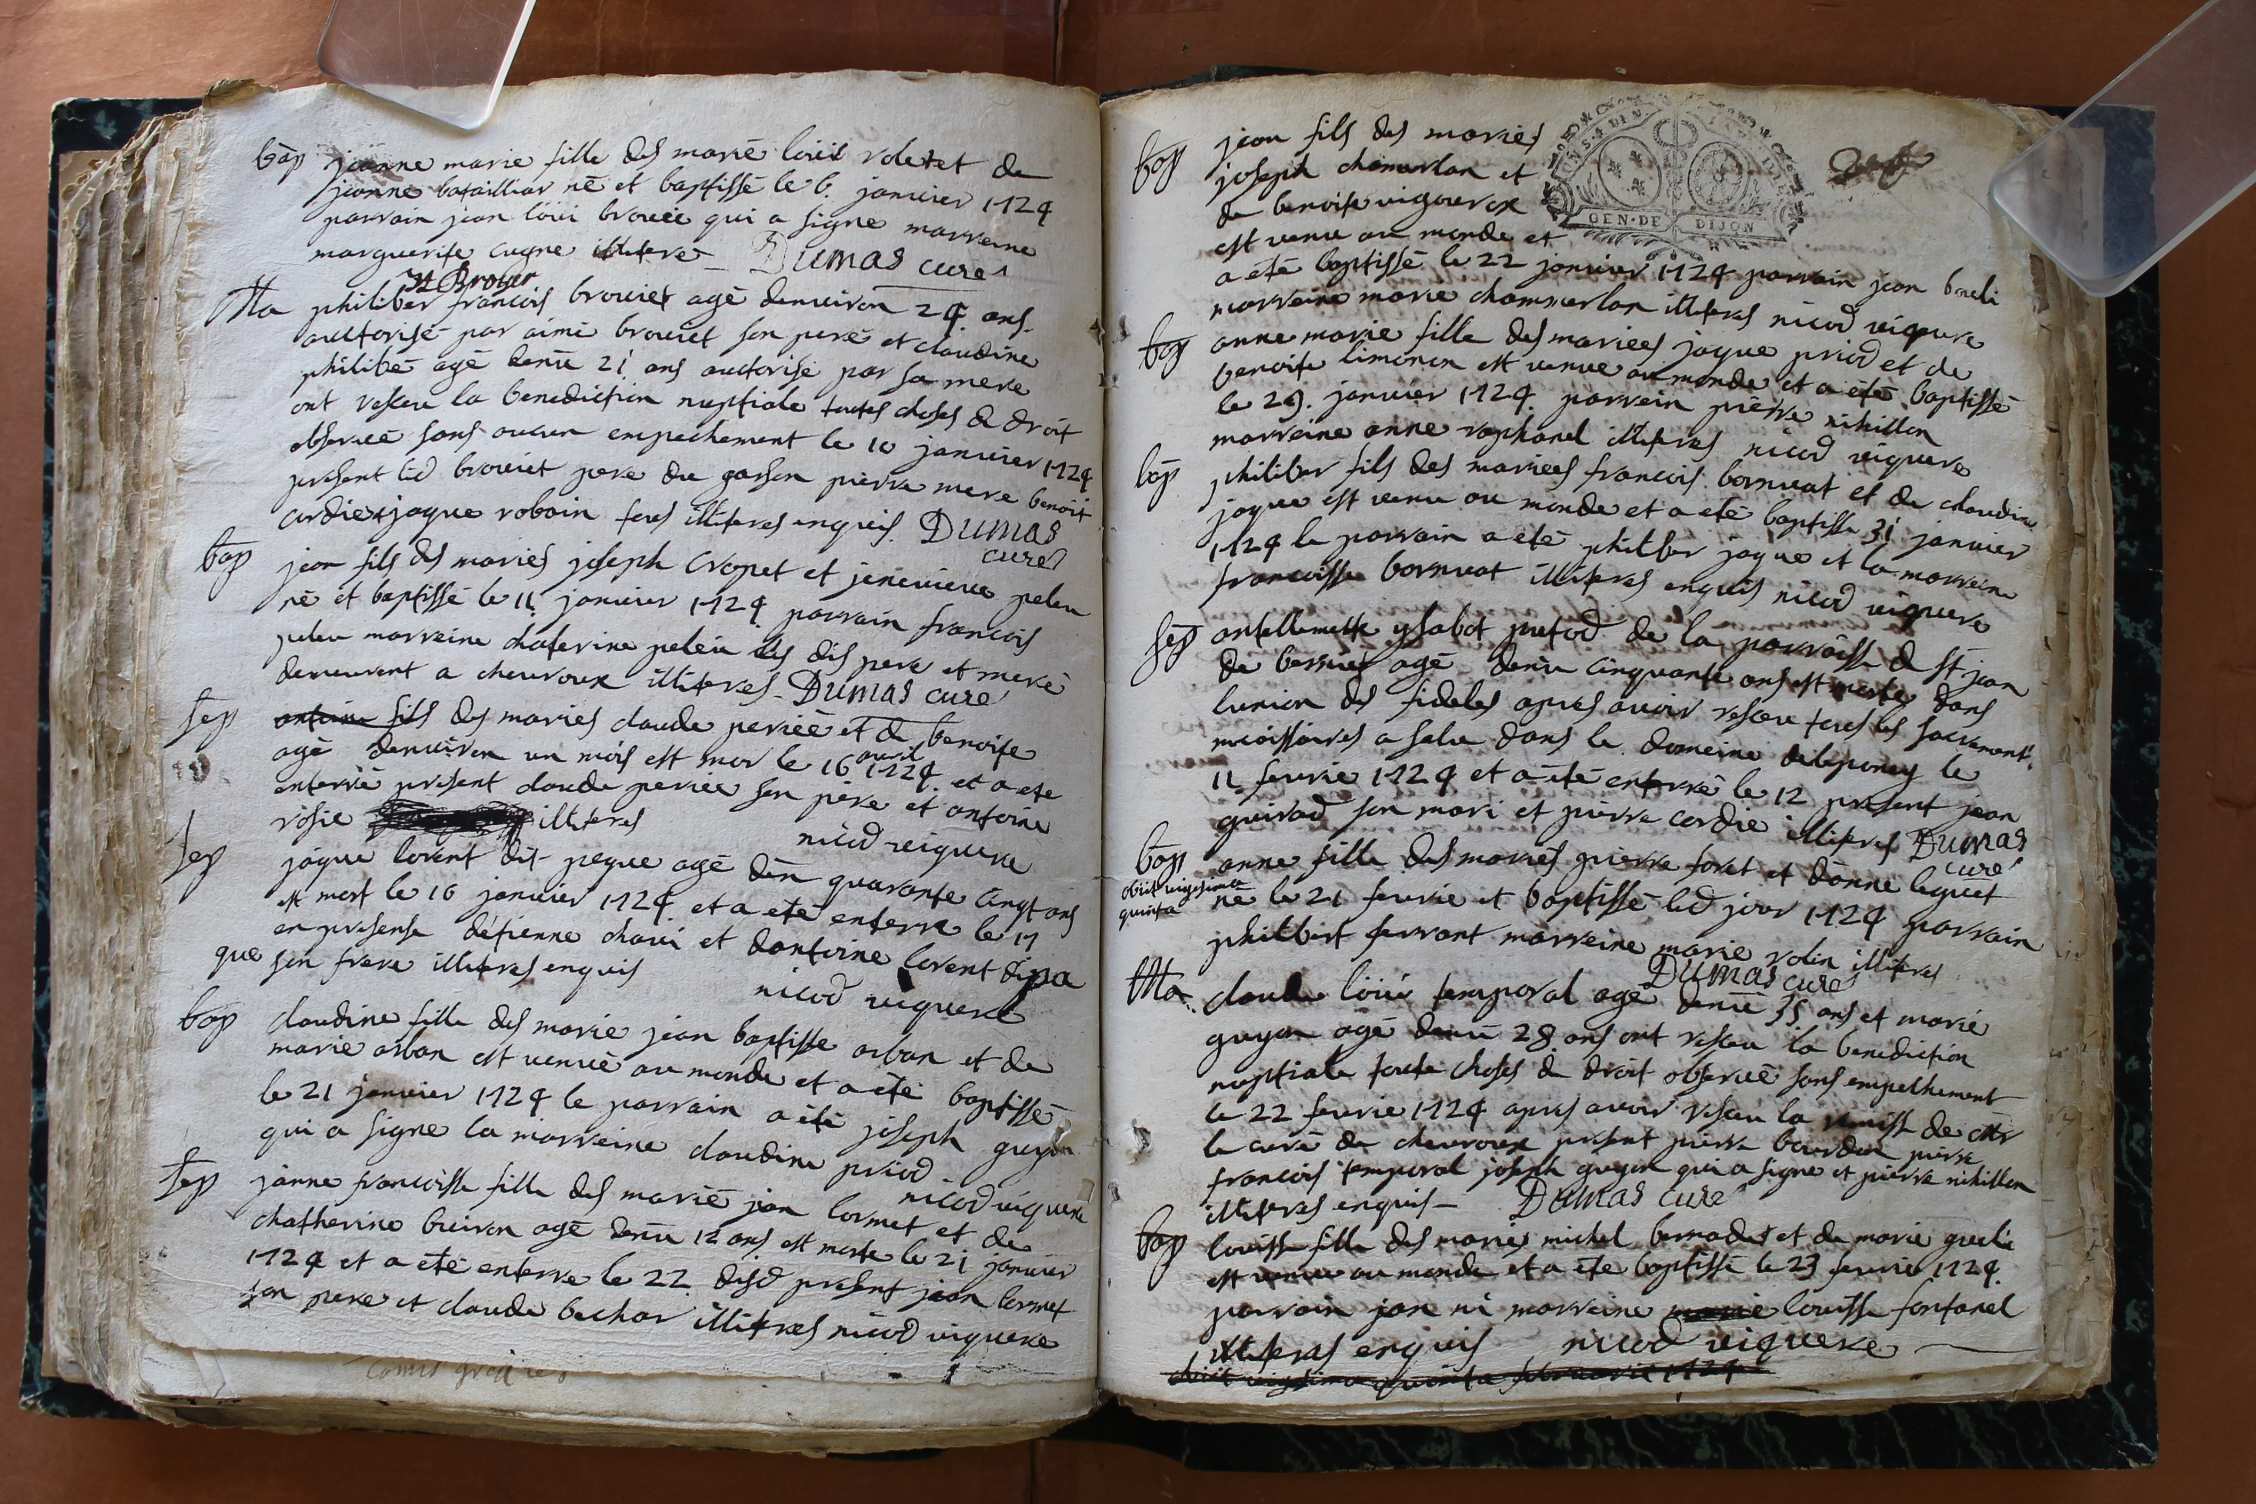 bap jeanne marie fille des marié loüis voletet de
jeanne batailliar né et baptissé le 6. janvier 1724
parrain jean loüi brouié qui a signe marreine
marguerite cugne illitere Dumas curé
J L Broyer
Ma philiber francois brouiet agé denuiron 24 ans
auctorisé par aimé brouiet son peré et claudine
philibé agé denúi 21 ans auctorisé par sa mere
ont resceu la benediction nuptiale toutes choses de droit
observeé sans aucun empechement le 10 janvier 1724
present led brouiet pere du garson pierre mere benoit
cordier jaque robain tous illiteres enquis Dumas
curé
bap jean fils des mariés joseph cropet et jenevieve peleu
né et baptissé le 11 janvier 1724 parrain francois
peleu marreine chaterine peleu les dis pere et meré
demeurent a chevroux illiteres Dumas curé
sep antoine fils des mariés claude periée et de benoite
agé denuiron un móis est mor le 16 avril 1724 et a eté
enterré present claude periée son pére et antoine
rosie illiteres
nicod viquere
sep jáque lorent dit peque agé dén quarante cinqt ans
est mort le 16 janvier 1724 et a eté enterre le 17
en presense détienne chavi et dantoine lorent di pa
que son frere illiteres enquis
nicod viquere
bap claudine fille des marié jean baptiste arban et de
marie arban est venuë au monde et a eté baptissé
le 21 janvier 1724 le parrain a eté joseph guyon
qui a signe la marreine claudine priod
nicod viquere
sep janne francoisse fille des marié jean cormet et de
chatherine buiron agé denúi 12 ans est morte le 21 janvier
1724 et a eté enterre le 22 dud present jean cormet
son pere et claude bechar illiteres nicod viquere
GEN·DE DIJON
bap jean fils des mariés
joseph chamerlan et
de benoite vigouroux
est venu au monde et
a eté baptissé le 22 janvier 1724 parrain jean
marreine marie chammerlan illiteres nicod viquere
bap anne marie fille des mariees jaque priod et de
benoite limonon est venue au monde et a eté baptissé
le 29. janvier 1724 parrein piérre nihillon
marreine anne raphanel illiteres nicod viquere
bap philiber fils des mariees francois bornuat et de claudine
jaque est venu au monde et a eté baptisse 31 janvier
1724 le parrain a eté philber jaque et la marreine
francoisse bornuat illiteres enquis nicod viquere
sep antellemette ysabot putod de la parroisse de st jean
de berrier agé denúi cinquante ans est morte dans
lunion des fideles apres avoir resceu tous les sacrements
necessaires a salu dans le domeine delepeney le
11 fevrie 1724 et a eté enterré le 12 present jean
guirad son mari et pierre cordie illiteres Dumas
curé
bap anne fille des mariés pierre foret et dánne lequet
obiit vigesima
quinta né le 21 fevrie et baptissé led jour 1724 parrain
philbert ferrant marreine marie rolin illiteres
Dumas curé
Ma claude loüis temporal agé denúi 35 ans et marie
guyon agé denúi 28. ans ont resceu la benediction
nuptiale toute choses de droit observé sans empechement
le 22 fevrie 1724 apres avoir resceu la remisse de mr
le curé de chevroux present pierre bourdon pierre
francois temporal joseph guyon qui a signe et pierre nihillon
illiteres enquis Dumas curé
bap louisse fille des mariés michel bernadet et de marie
est venue au monde et a eté baptissé le 23 fevrie 1724.
parrain jan ni marreine marie louisse fontanel
illiteras enquis nicod viquere
obiit vigesima quinta februarii 1724